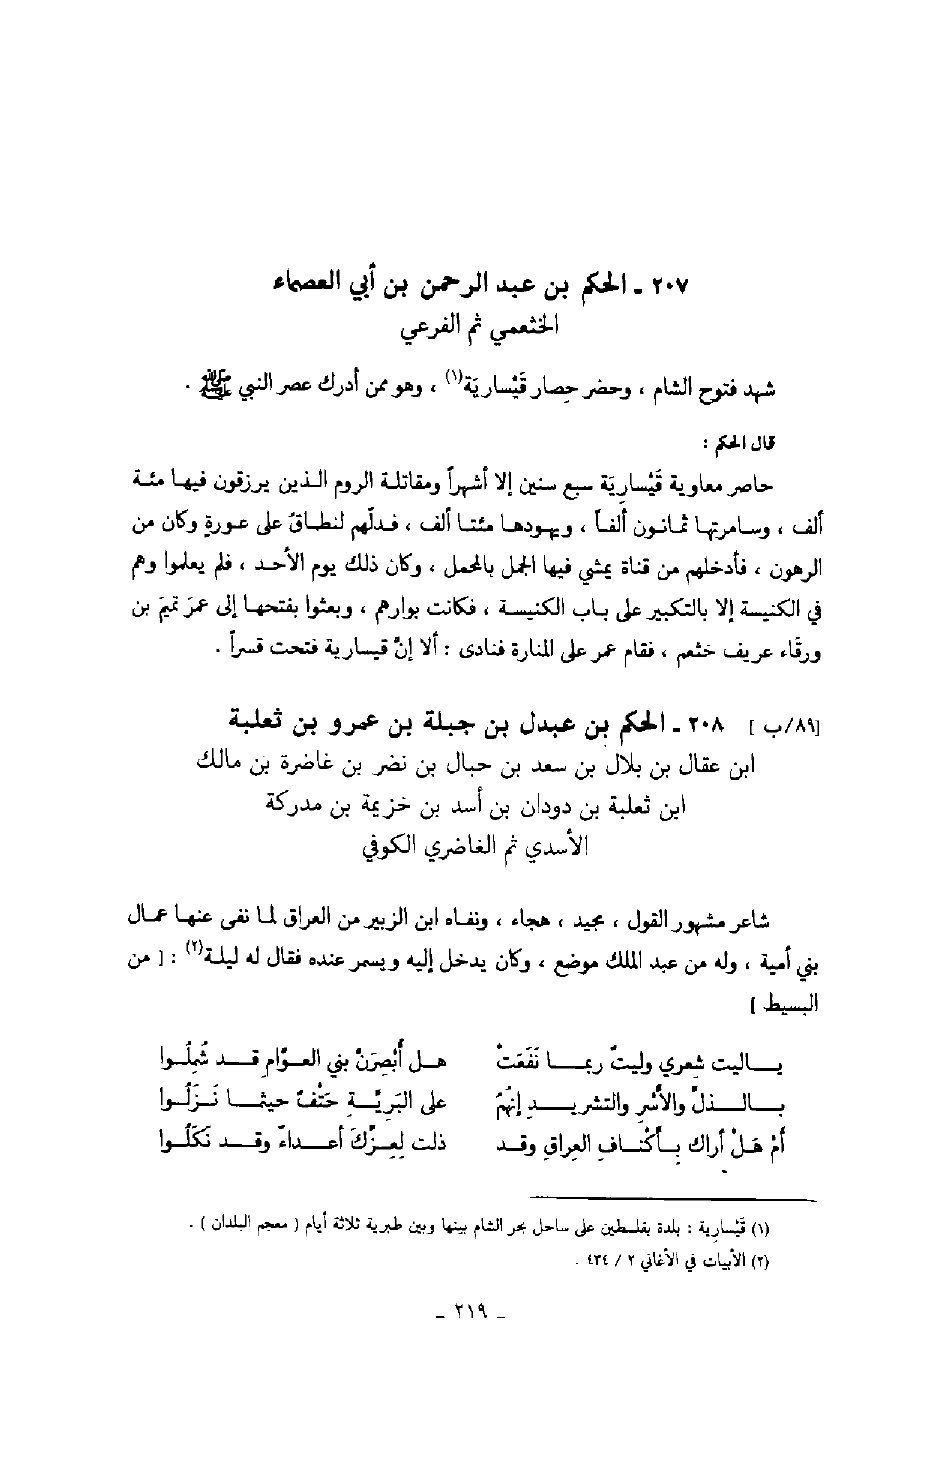 ٢٠٧ ـ الحكم بن عبد الرحمن بن أبي العصماء
الخثعمي ثم الفرعي
شهد فتوح الشام ، وحضر حِصار قَيْسارِيَة(١) ، وهو ممن أدرك عصر النبي ﷺ .
قال الحكم :
حاصر معاوية قَيْسارِيَة سبع سنين إلا أشهراً ومقاتلة الروم الذين يرزقون فيها مئة
ألف ، وسامرتها ثمانون ألفاً ، ويهودها مئتا ألف ، فدلّهم لنطاق على عورةٍ وكان من
الرهون ، فأدخلهم من قناة يمشي فيها الجمل بالمحمل ، وكان ذلك يوم الأحد ، فلم يعلموا وهم
في الكنيسة إلا بالتكبير على باب الكنيسة ، فكانت بوارهم ، وبعثوا بفتحها إلى عمَرَ تميمَ بن
ورقاء عريف خثعم ، فقام عمر على المنارة فنادى : ألا إنَّ قيسارية فتحت قسراً .
[٨٩/ب] ٢٠٨ ـ الحكم بن عبدل بن جبلة بن عمرو بن ثعلبة
ابن عقال بن بلال بن سعد بن حبال بن نضر بن غاضرة بن مالك
ابن ثعلبة بن دودان بن أسد بن خزيمة بن مدركة
الأسدي ثم الغاضري الكوفي
شاعر مشهور القول ، مجيد ، هجاء ، ونفاه ابن الزبير من العراق لما نفى عنها عمال
بني أمية ، وله من عبد الملك موضع ، وكان يدخل إليه ويسمر عنده فقال له ليلة(٢) : [ من
البسيط ]
يا ليت شعري وليتٌ ربما نَفَعَتْ هل أُبْصِرَنْ بني العوّامِ قد شُمِلُوا
بالذلّ والأسْرِ والتشريدِ إنهُمُ على البَرِيَّةِ حَتْفٌ حيثما نَزَلُوا
أمْ هَلْ أراك بأكْنافِ العِراقِ وقد ذلت لِعِزِّكَ أعداءٌ وقد نَكَلُوا
(١) قَيْسارِية : بلدة بفلسطين على ساحل بحر الشام بينها وبين طبرية ثلاثة أيام ( معجم البلدان ) .
(٢) الأبيات في الأغاني ٢ / ٤٢٤ .
ـ ٢١٩ ـ